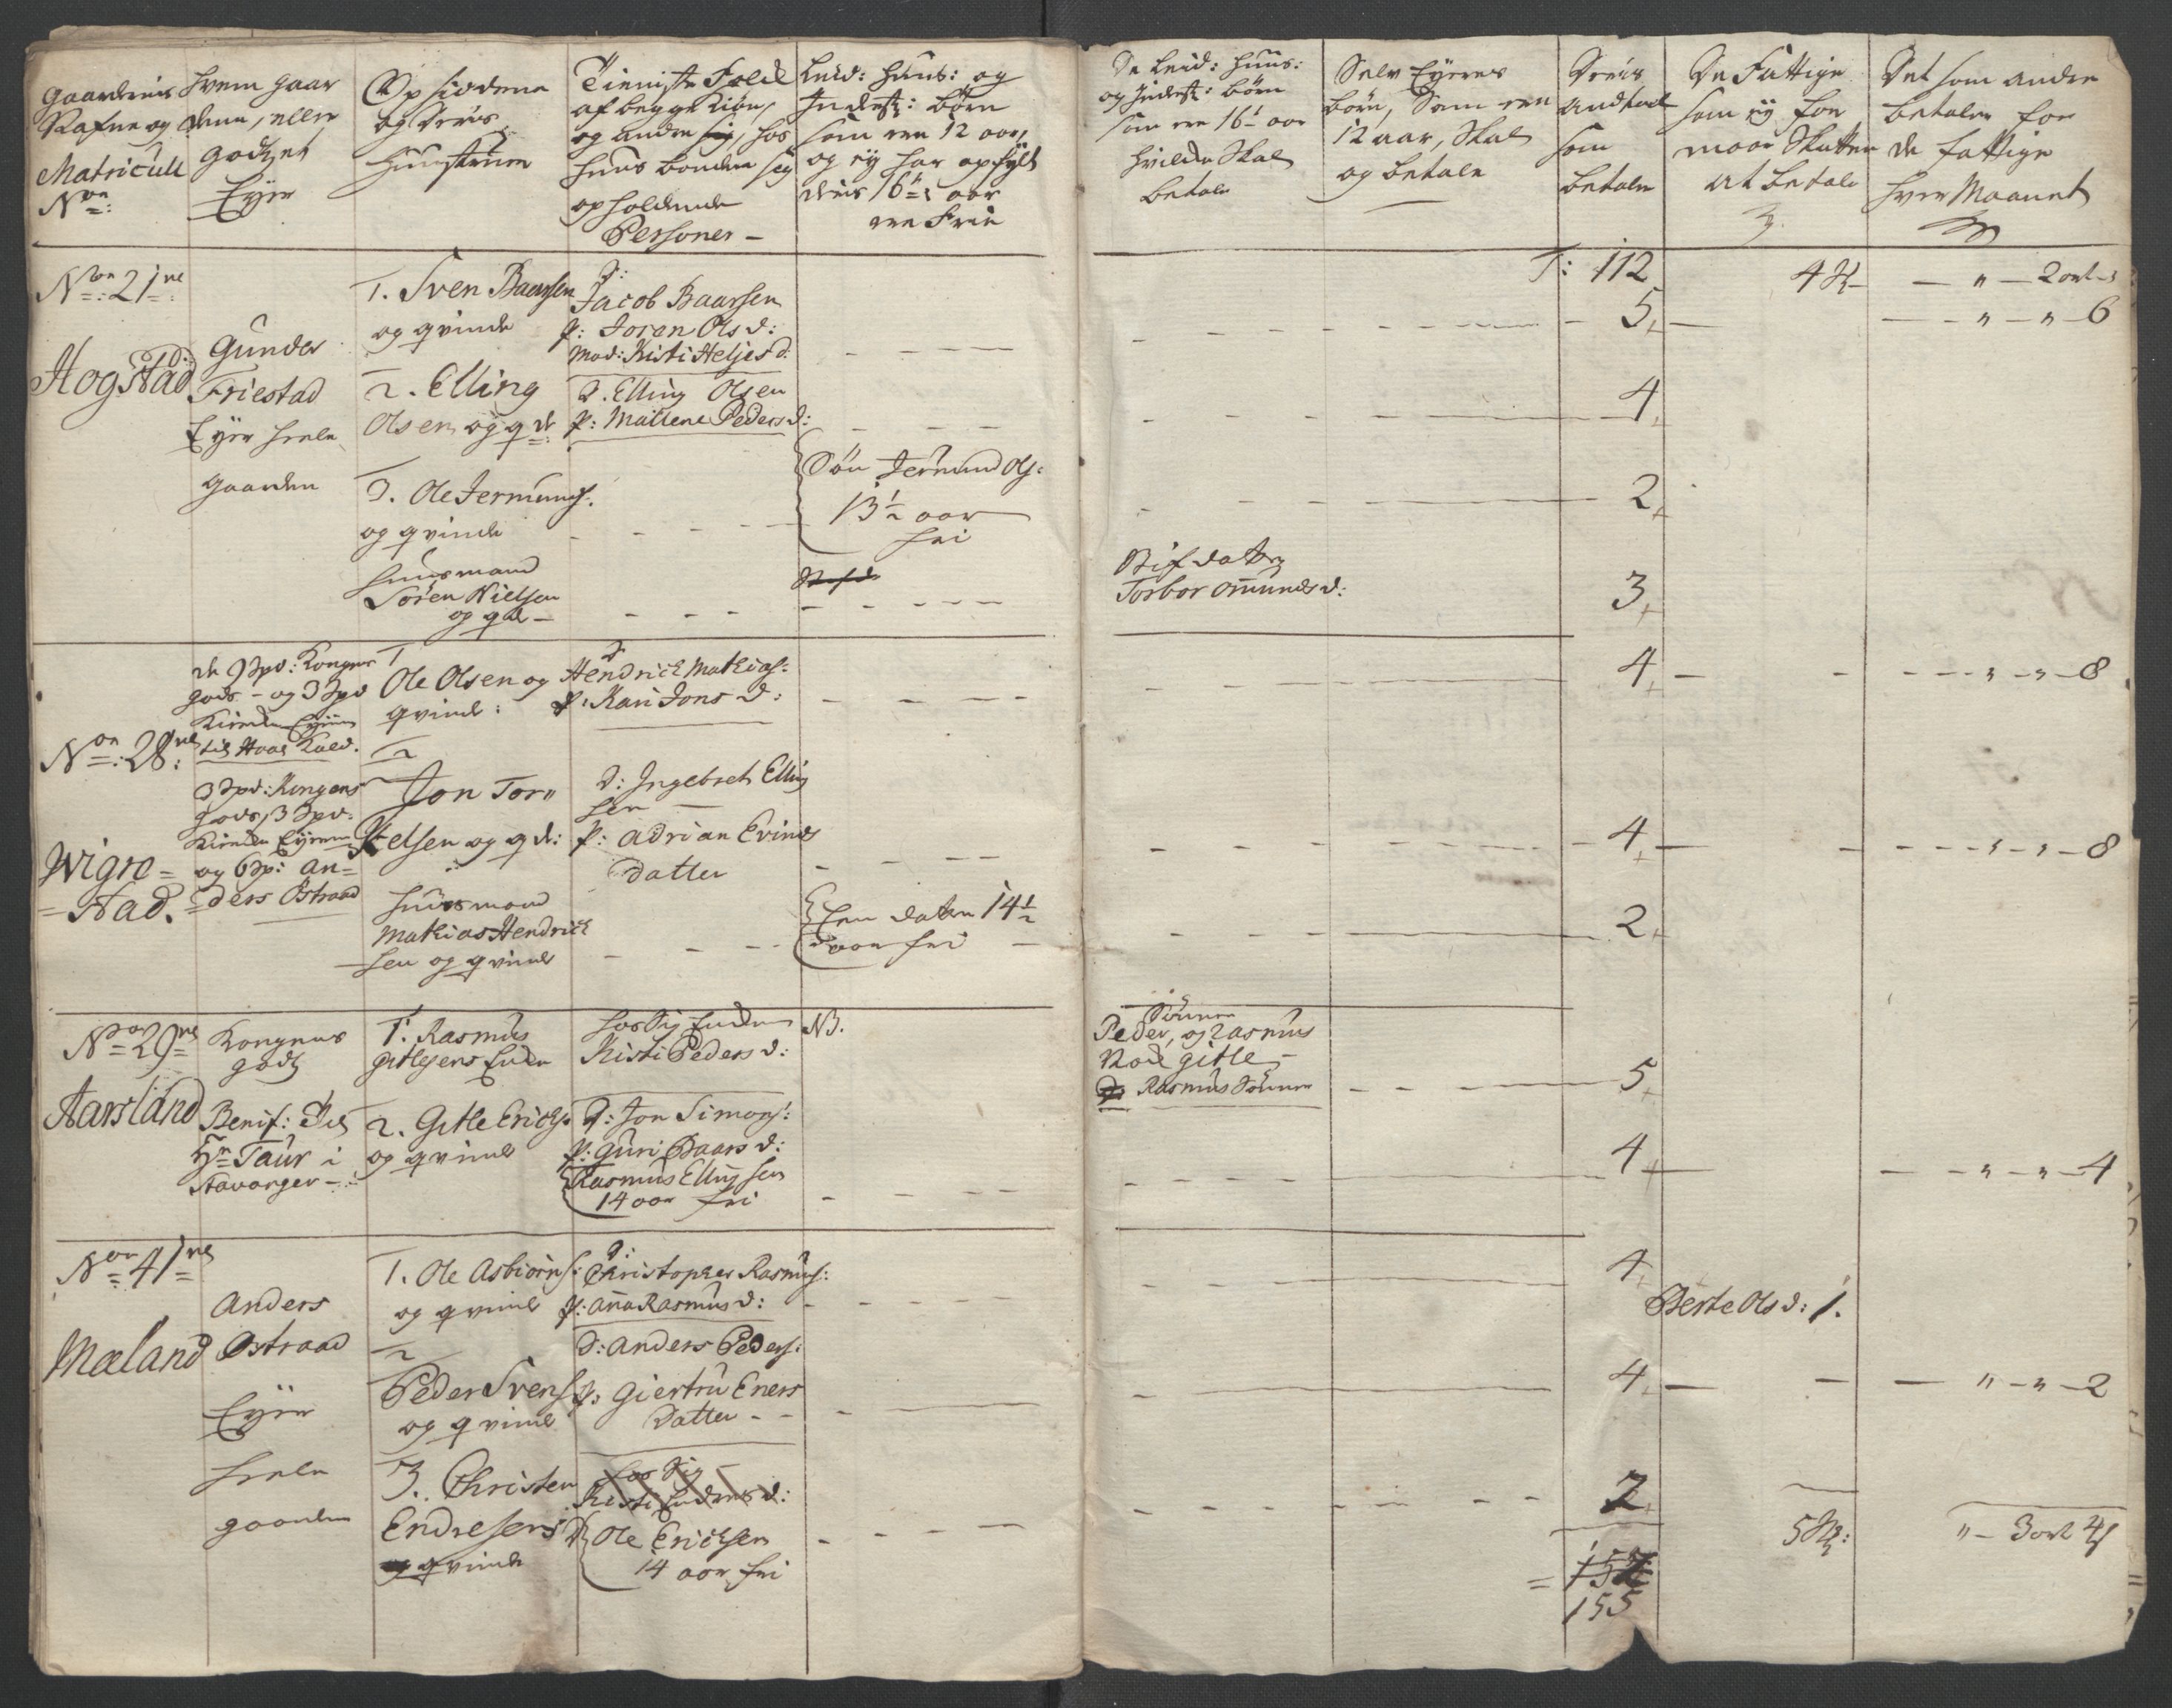 Gaardenis
Nafne og
Matricull
No:
Hvem Gaar
denn, eller
Godzet
Eyer
Opsiddene
og Dereis
Hunstruer
Tieniste Folck
af begge Kiøn,
og andre sig, hos
huus bonden sig
opholdende
Personer -
Leid: huus: og
Inderst: børn
som ere 12 aar,
og ey har opfylt
deris 16de aar
ere Frie
De Leid: huus:
og Inderst: børn
som ere 16 aar
hvilcke Skal
betale
Selv Eyernes
børn, Som ere
12 aar, Skal
og betale
Dereis
Andtael
som
betaler
De Fattige
som ey for
maar Skatten
at betale
Det som andre
betaler for
de fattige
hver Maanet
T: 112
4 St - - " - 2 ort -
Non: 21ne
Hogstad
Gunder
Friestad
Eyer heele
gaarden
1. Sven Baarsen
og qvinde
D:
Jacob Baarsen
P: Joran Ols d:
Mod: Kisti Heljes d:
5 - - " - " - 6
2. Elling
Olsen og qde
D. Elling Olsen
P: Mallene Peders d:
4
3. Ole Jermunds:
og qvinde
Søn Jermund Ols:
13½ aar
fri
2
huusmand
Søren Nielsen
og qde -
Stifdater
Torbor Omunds d:
3
Non: 28ne
Wigre=
=stad.
de 9 Spd: Kongens
gods - og 3 Spd
Kircken Eyier
til Haae Kald.
3 Spd: Kongens
gods, 3 Spd.
Kircken Eyer
og 6 Sp: An=
ders Østraad
1
Ole Olsen og
qvind:
D.
Hendrich Mathias:
P: Kari Jons d:
4 - - - " - " - 8
2
Jon Tor"
kelsen og qd:
D: Ingebret Elling
sen
P: Adrian Evinds
datter
4 - - - " - " - 8
huusmand
Mathias Hendrich
sen og qvinde
Een dater 14½
aar fri
2
No 29ne
Aarsland
Kongens
godz
Benif: Til
Hr Taur i
Stavanger -
1. Rasmus
Gitlesens Encke
hos Sig Encken
Kisti Peders d:
NB.
Sønner
Peder, og Rasmus
Gitle -
Rasmus Sønner
5
2. Gitle Erichs:
og qvinde
D: Jon Simons:
P: Guri Baars d:
Rasmus Ellingsen
14 aar fri
4 - - " - " - 4
Non 41ne
Mæland
Anders
Østraad
Eyer
heele
gaarden
1. Ole Asbiørns:
og qvinde
D:
Christopher Rasmus:
P: Anna Rasmus d:
4
Berte Ols d: 1.
2
Peder Svens:
og qvinde
D: Anders Peders:
P: Giertru Eners
Datter - -
4 - - - " - " - 2
3. Christen
Endresen
og qvinde
hos Sig
Kisti Endres d:
D Ole Erichsen
14 aar fri
2
5 St:
" - 3 ort 4 s
= 157
155